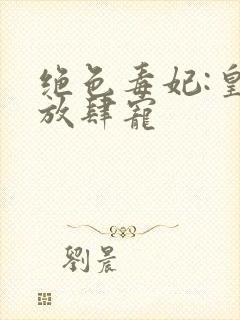 绝色毒妃:皇
放肆寵
劉晨